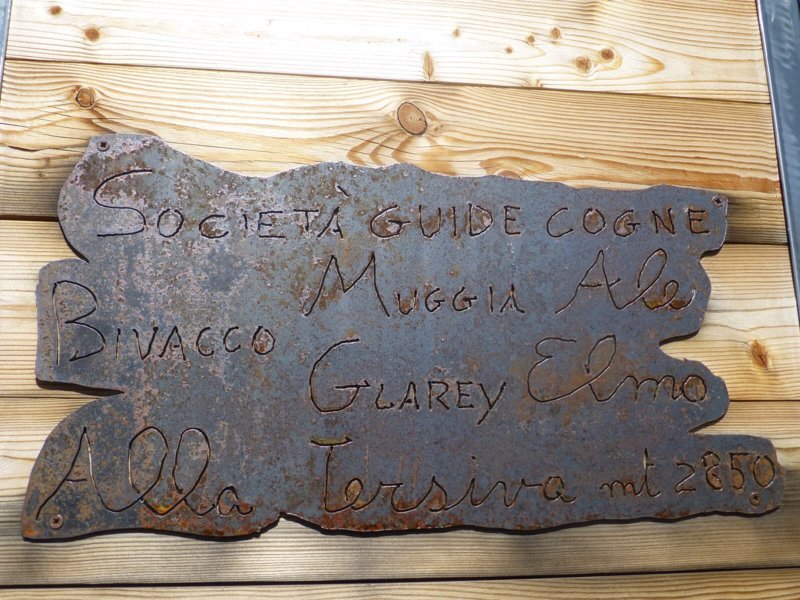 SOCIETÀ GUIDE COGNE
BIVACCO MUGGIA Ale
GLAREY Elmo
Alla Tersiva mt 2850